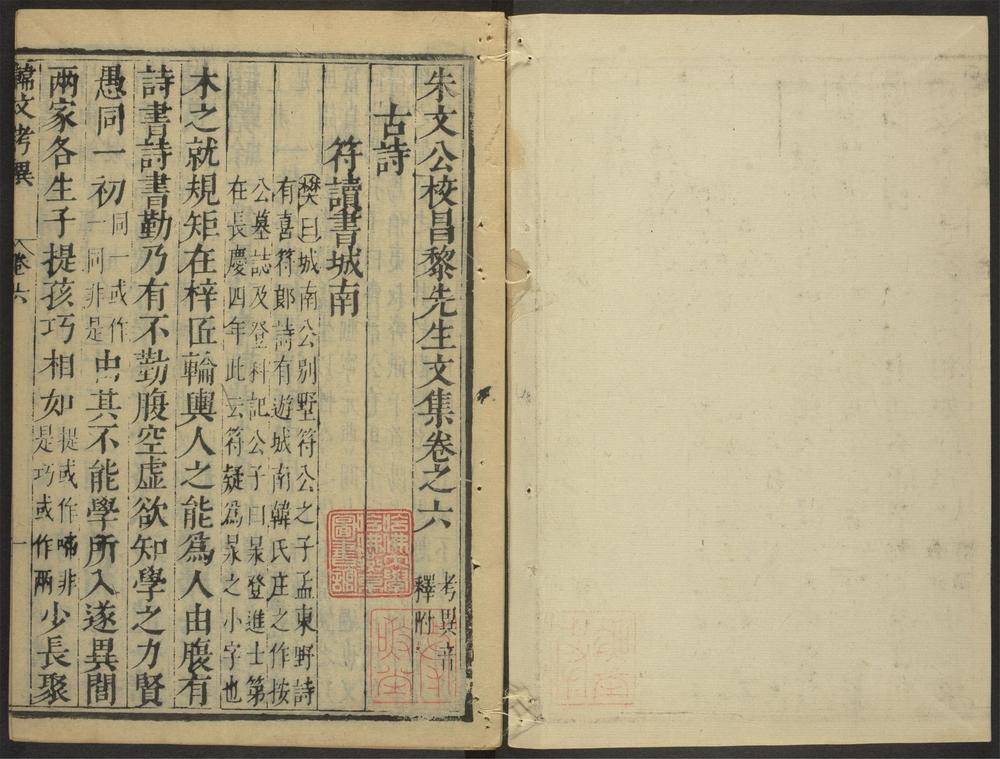 朱文公校昌黎先生文集卷之六
考異音
釋附
古詩
符讀書城南
樊曰城南公別墅符公之子孟東野詩
有喜符郎詩有遊城南韓氏庄之作按
公墓誌及登科記公子曰杲登進士第
在長慶四年此云符疑爲杲之小字也
木之就規矩在梓匠輪輿人之能爲人由腹有
詩書詩書勤乃有不勤腹空虛欲知學之力賢
愚同一初同一或作一同非是由其不能學所入遂異閭
兩家各生子提孩巧相如提或作啼非是巧或作兩少長聚
韓文考異
卷六
一
哈佛大學
哈佛燕京
圖書館